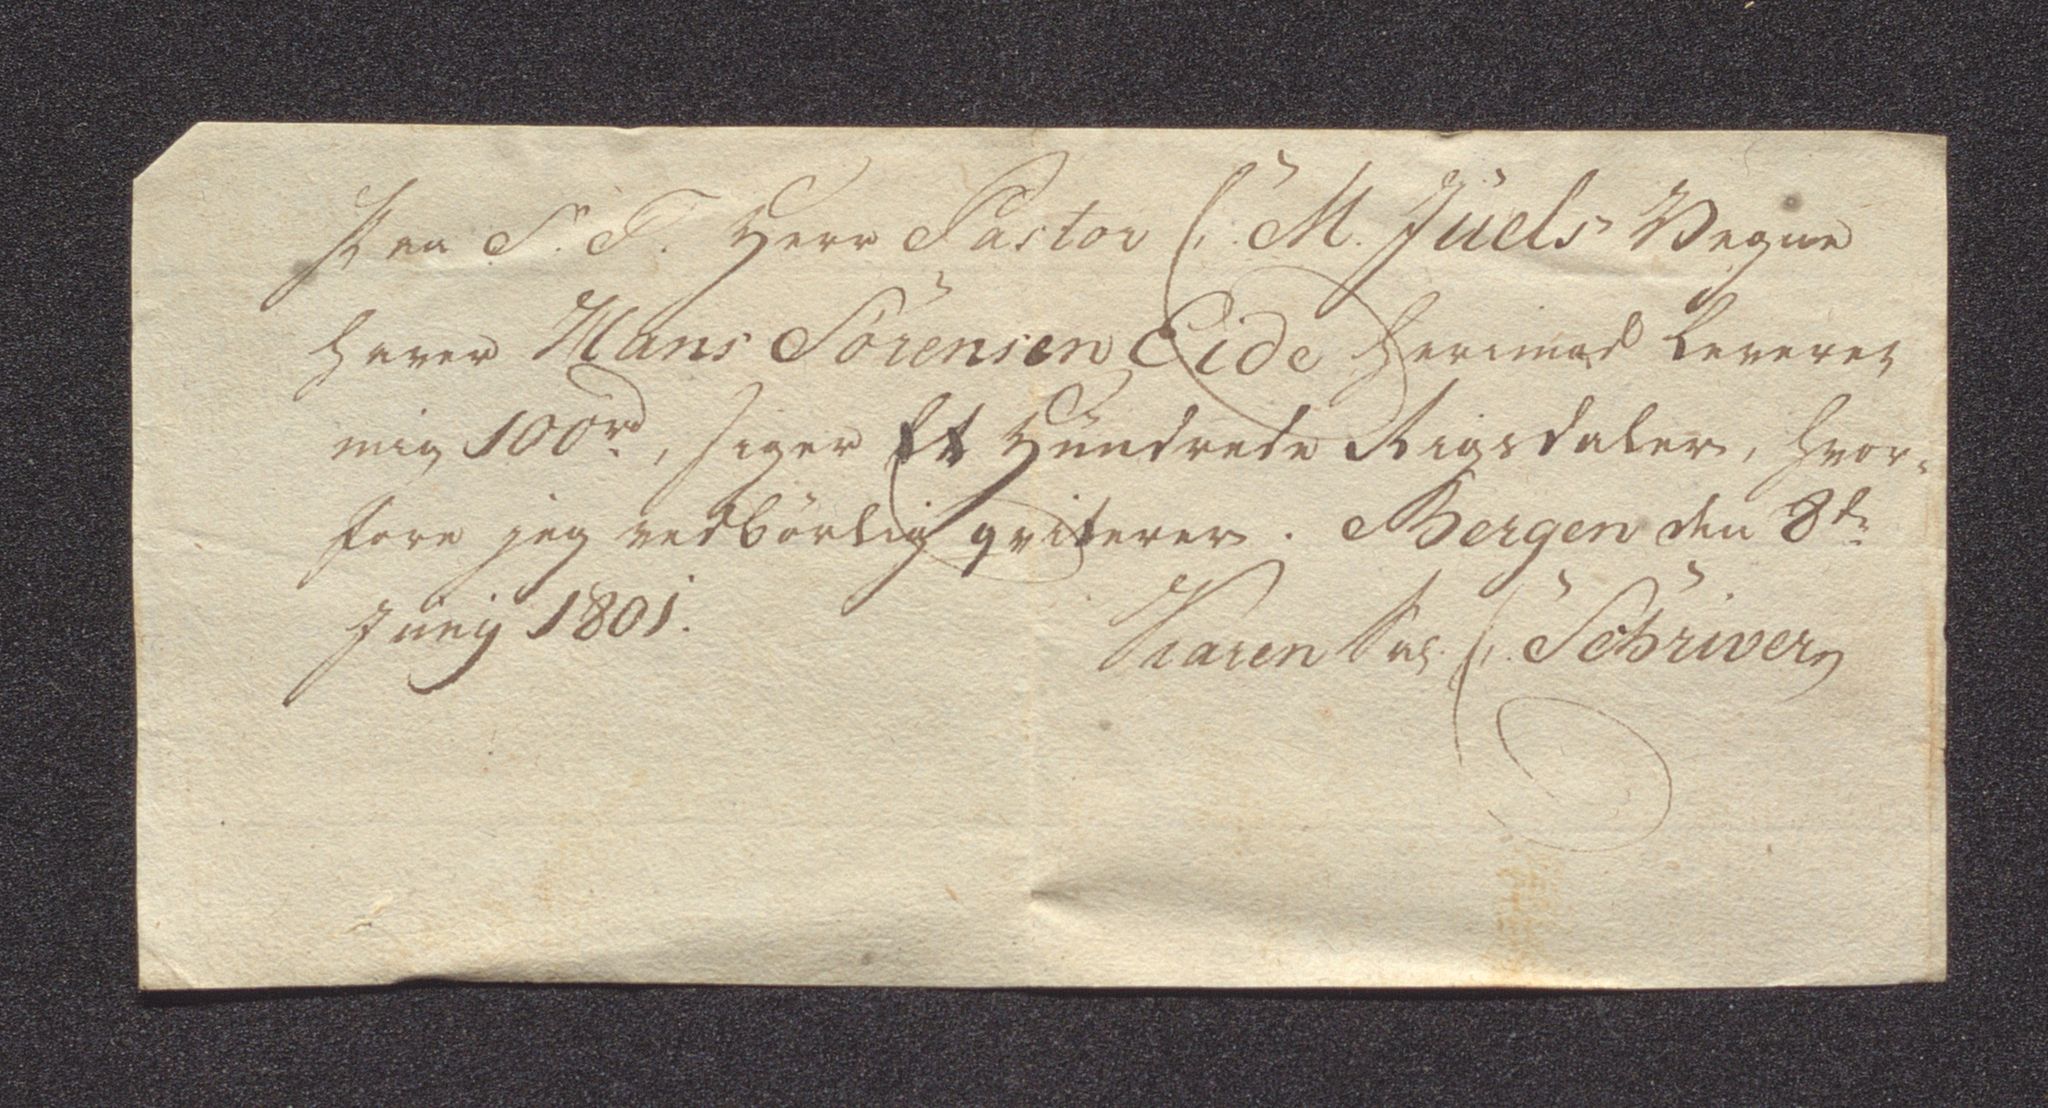 Paa S. T. Herr Pastor M. Juels Vegne
haver Hans Sörensen Eide herimod leveret
mig 100rd, siger Et Hundrede Rigsdaler, hvor-
fore jeg vedbörlig qviterer. Bergen den 8de
Junij 1801.
Karen Sal. Schriver